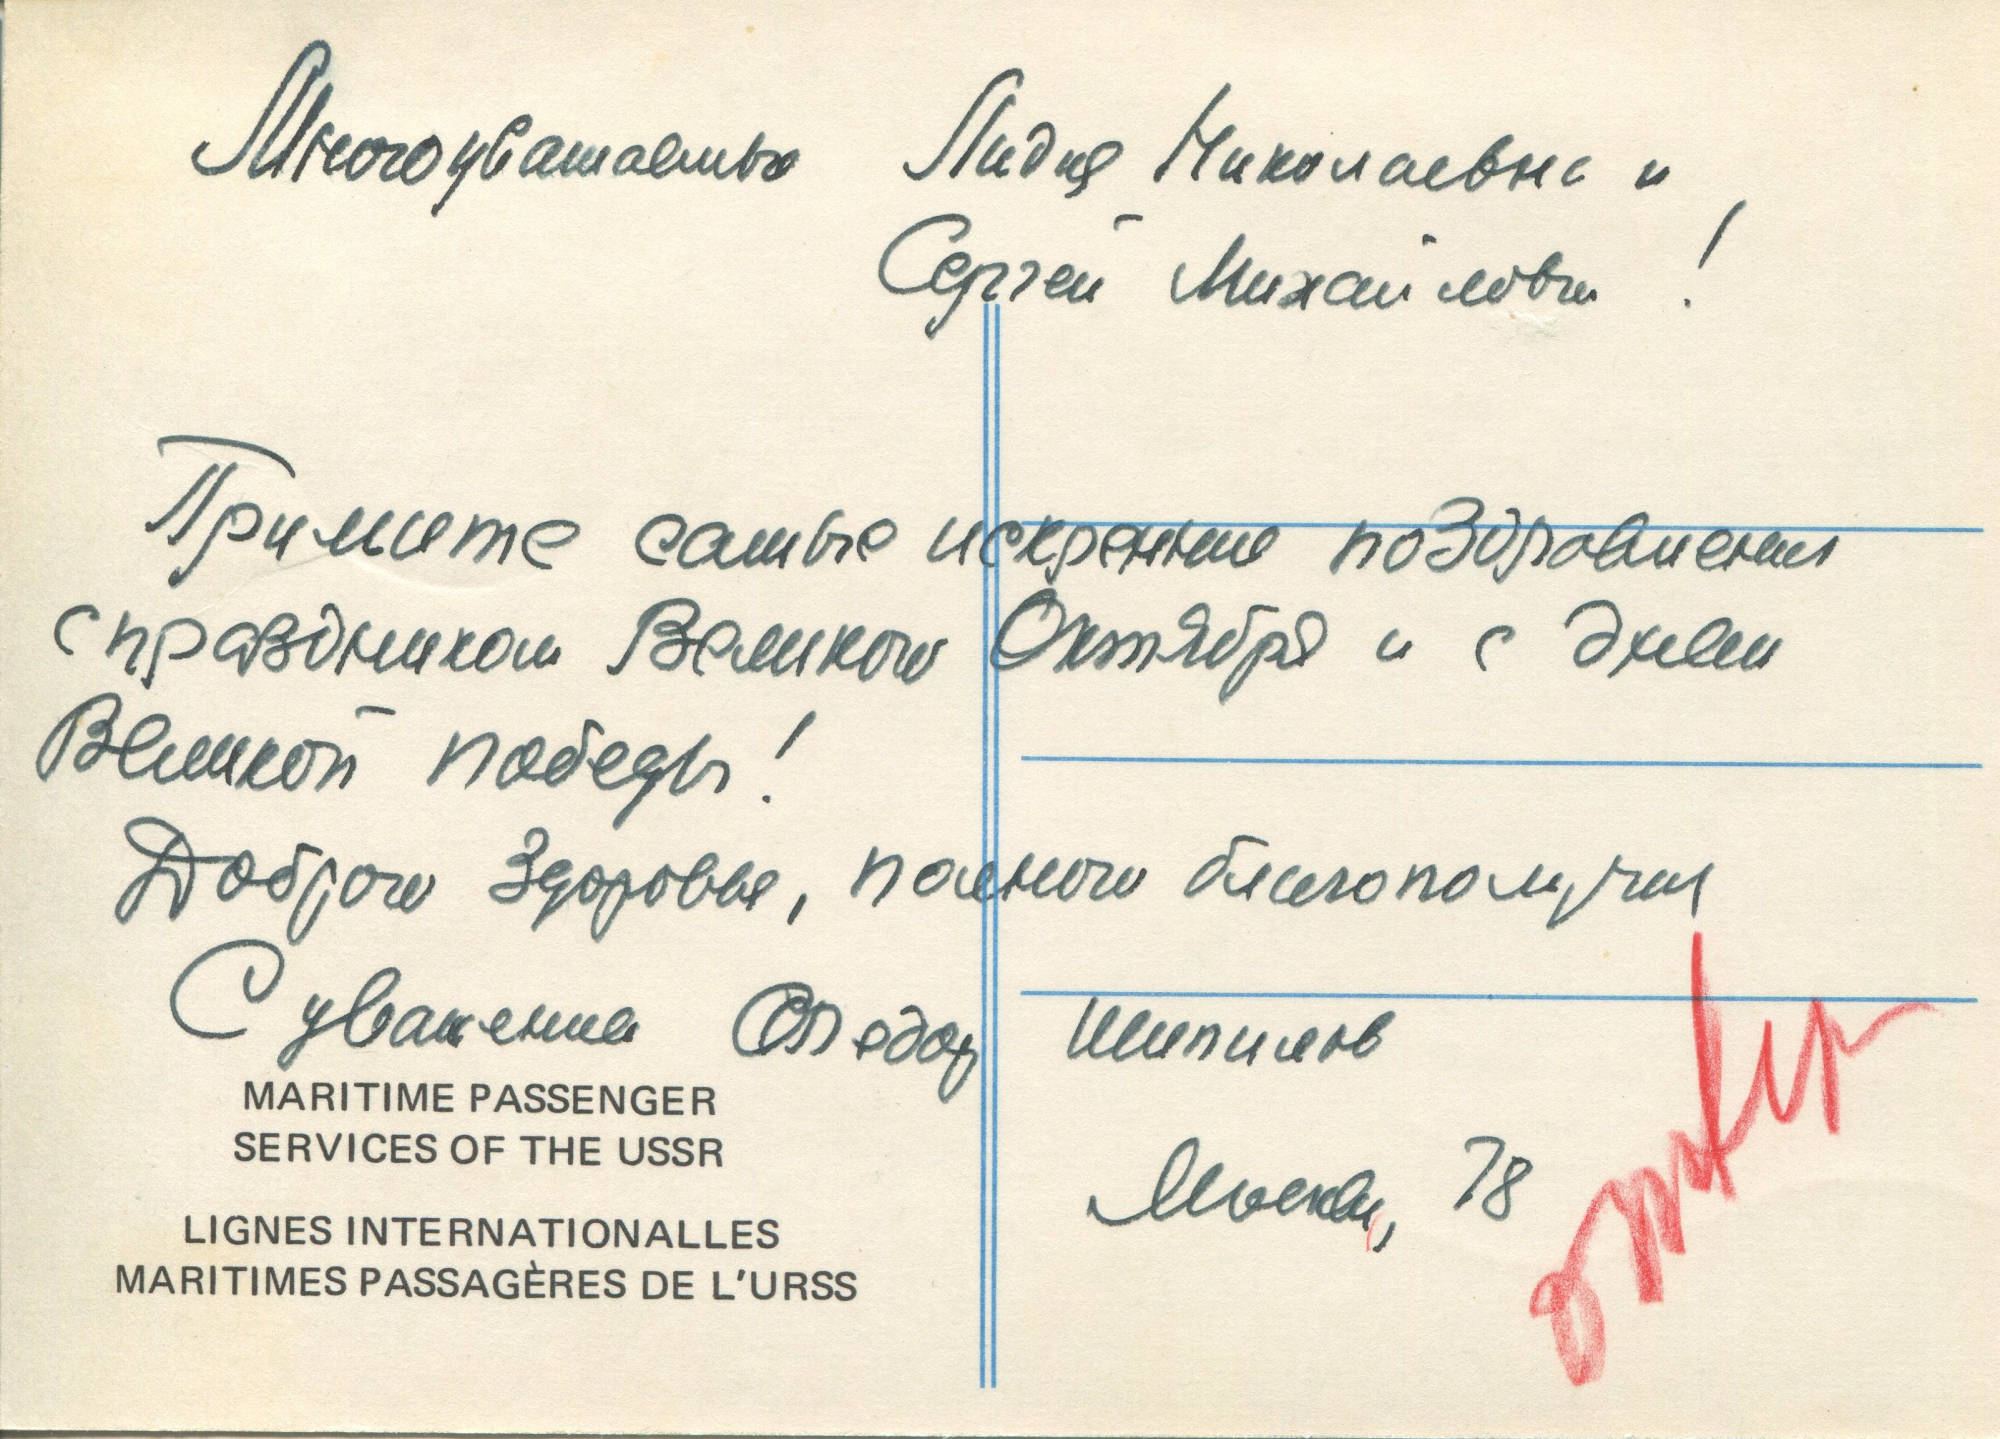 Многоуважаемые Лидия Николаевна и
Сергей Михайлович!
Примите самые искренние поздравления
с праздником Великого Октября и с днем
Великой победы!
Доброго здоровья, полного благополучия
С уважением Федор Шипилов
MARITIME PASSENGER
SERVICES OF THE USSR
LIGNES INTERNATIONALLES
MARITIMES PASSAGÈRES DE L'URSS
Москва, 78